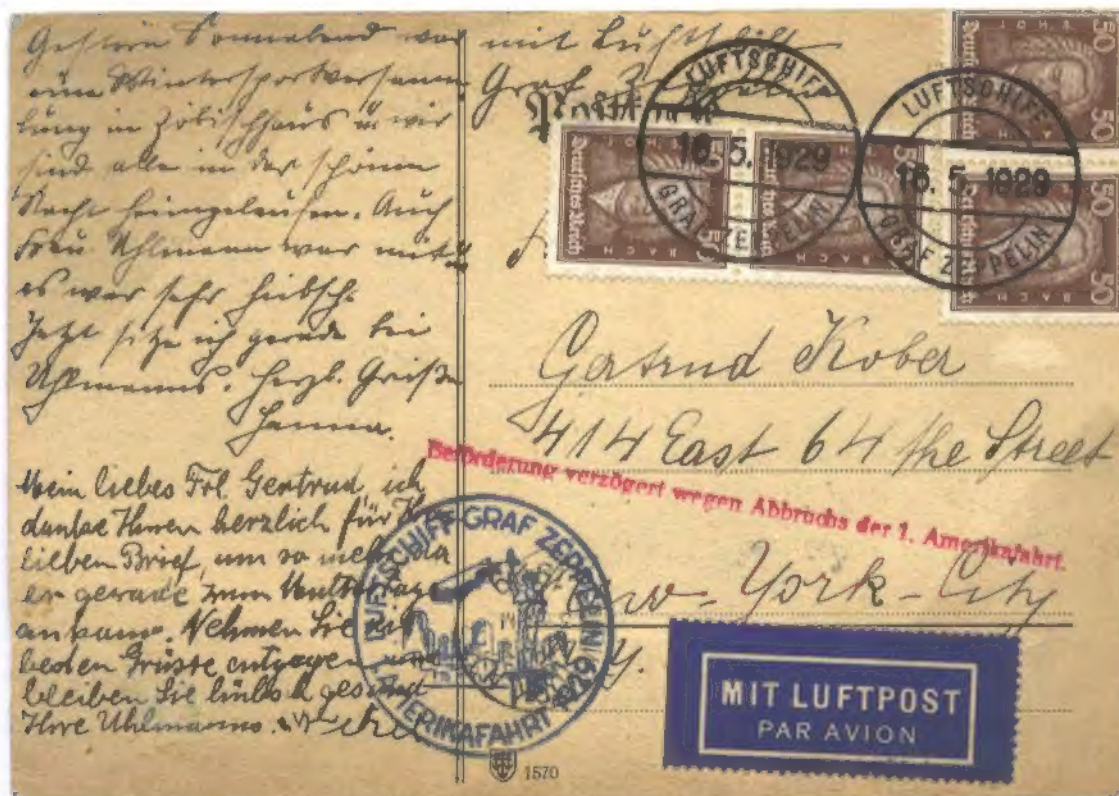 Gestern Sonnabend war
eine Wintersportversamm-
lung in Zöbischhaus u. wir
sind alle in der schönen
Nacht heimgelaufen. Auch
Frau Uhlmann war mit
es war sehr hübsch.
Jetzt sitze ich gerade bei
Uhlmanns. Herzl. Grüße
Hanna.
Mein liebes Frl. Gertrud, ich
danke Ihnen herzlich für
lieben Brief, um so mehr da
er gerade zum Muttertage
ankam. Nehmen Sie
besten Grüsse entgegen und
bleiben Sie hübsch gesund
Ihre Uhlmanns.
mit Luftschiff
Graf Zeppelin
Postkarte
LUFTSCHIFF
16.5.1929
GRAF ZEPPELIN
LUFTSCHIFF
16.5.1929
GRAF ZEPPELIN
50
BACH
Deutsches Reich
50
BACH
Deutsches Reich
50
BACH
Deutsches Reich
50
BACH
Deutsches Reich
Gertrud Kober
414 East 64 the Street
Beförderung verzögert wegen Abbruchs der 1. Amerikafahrt.
New-York-City
LUFTSCHIFF GRAF ZEPPELIN
AMERIKAFAHRT 1929
MIT LUFTPOST
PAR AVION
1570